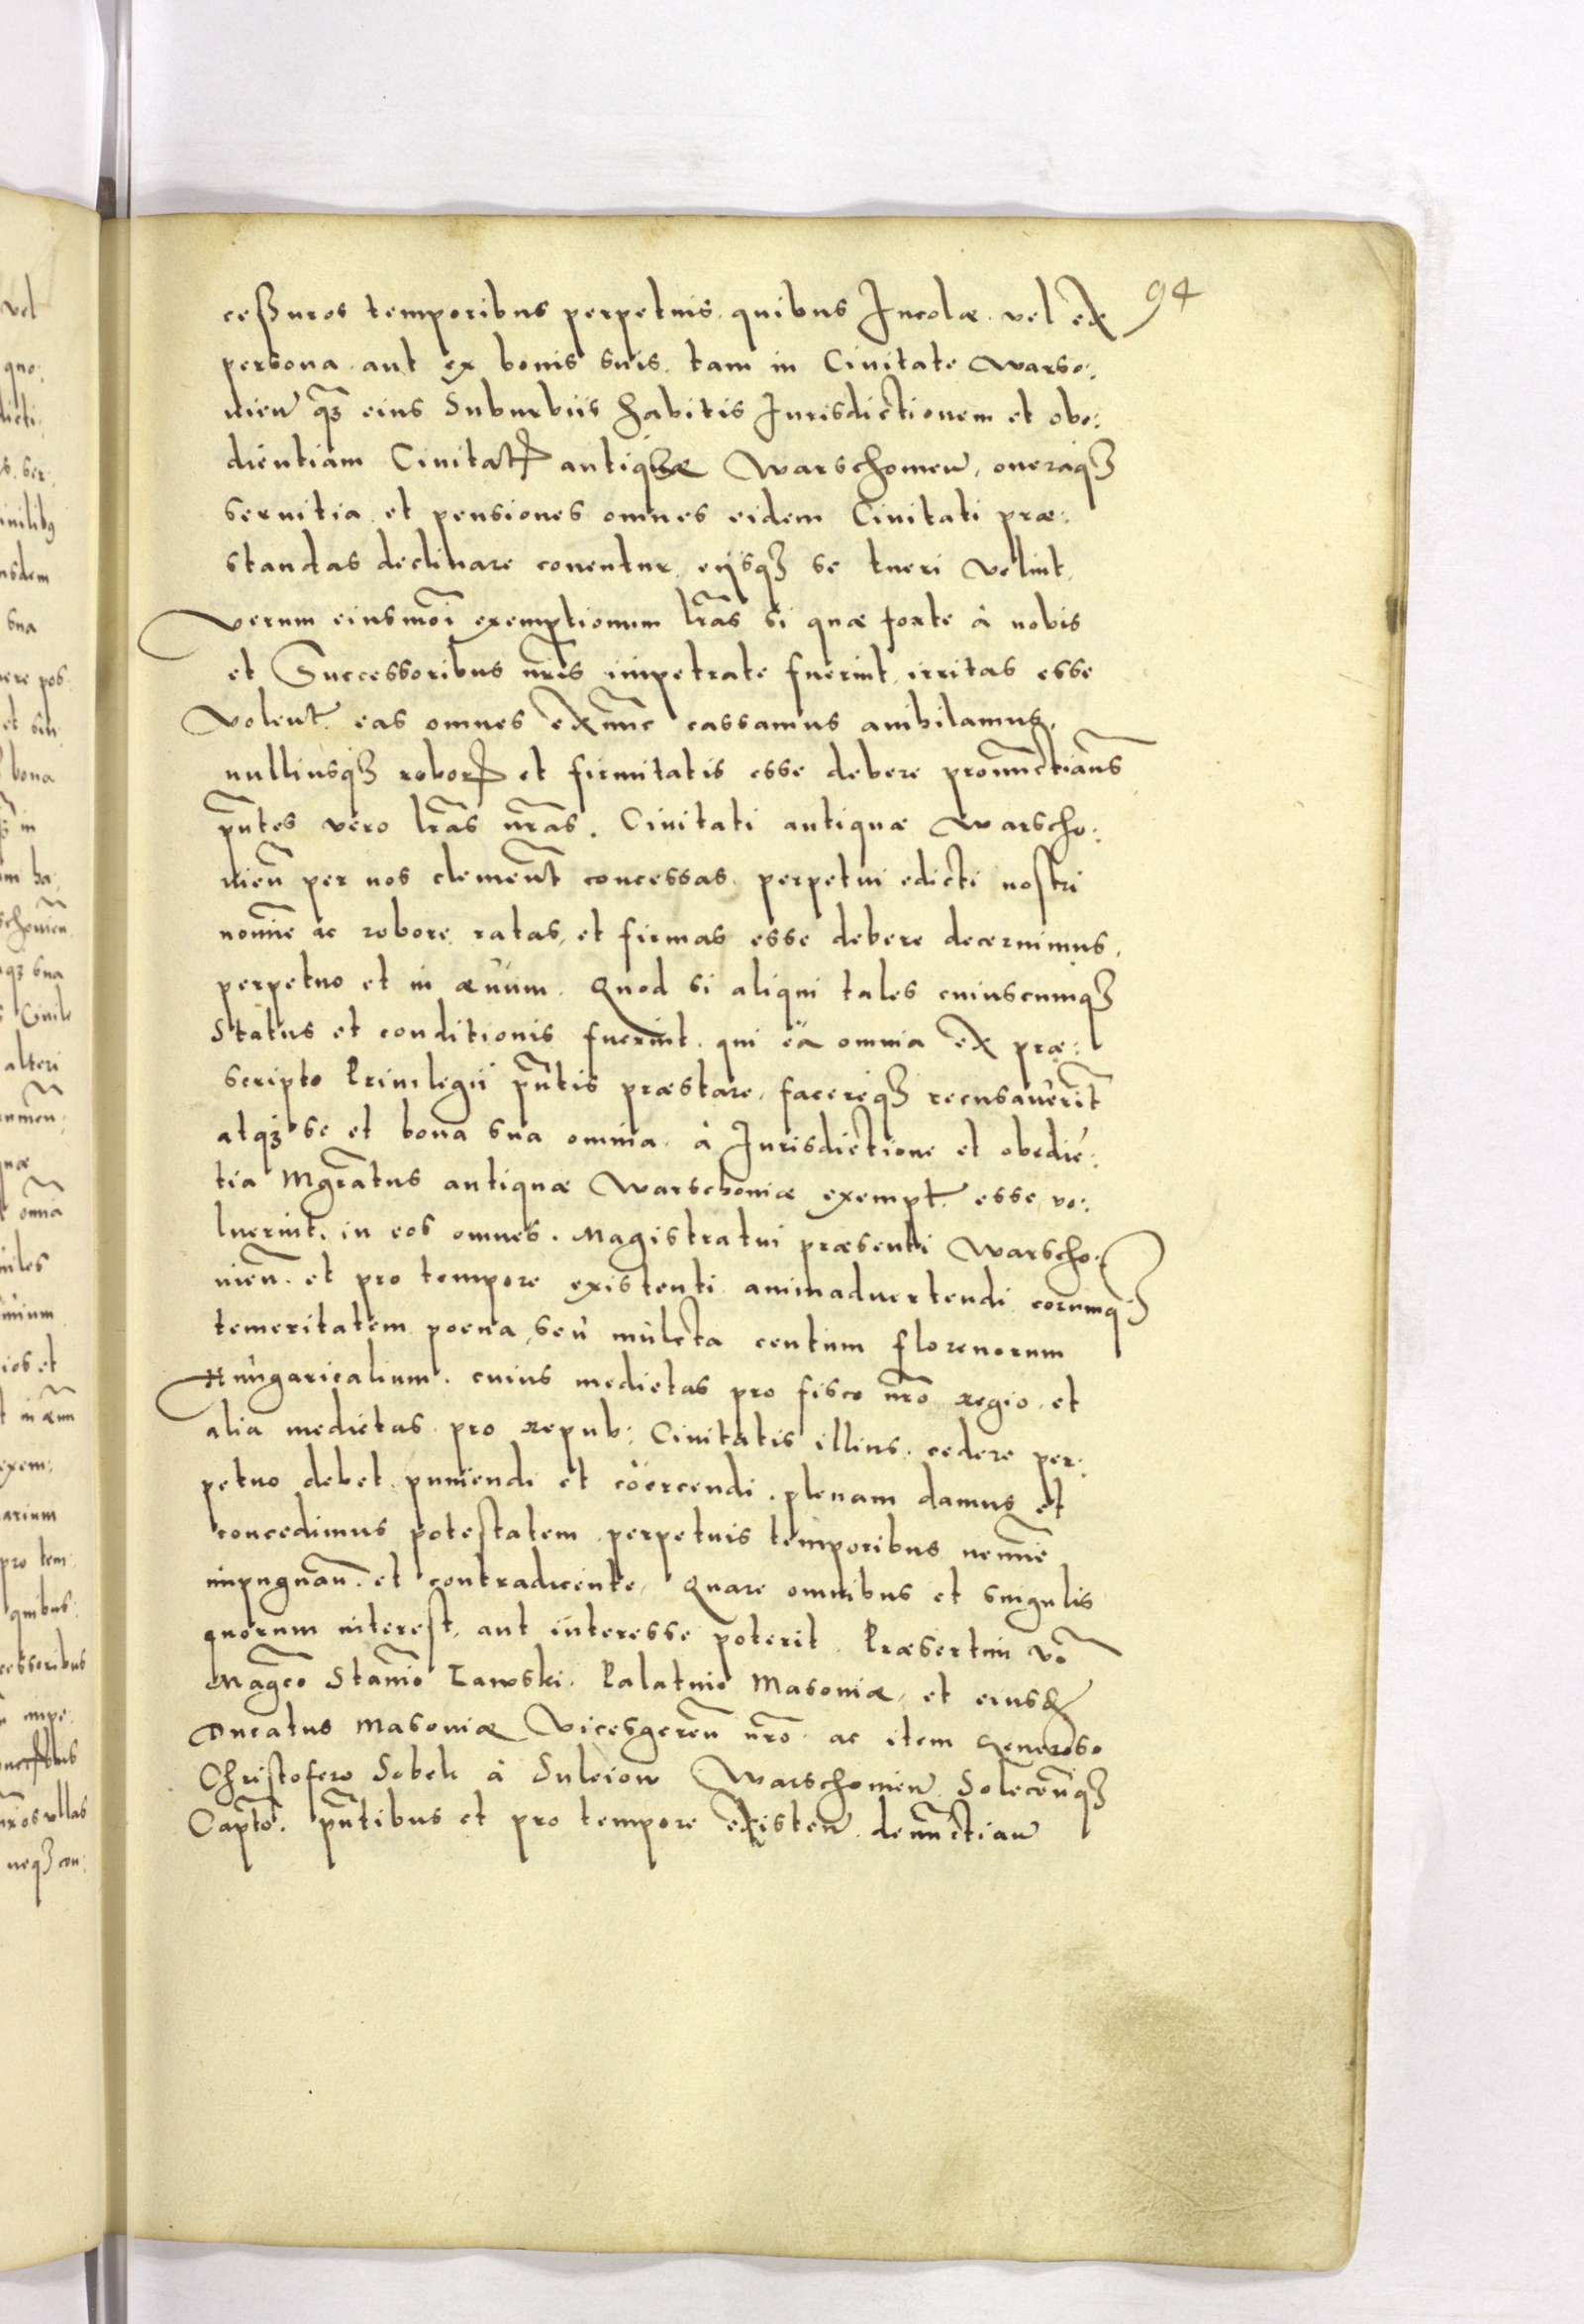 94
ceßuros temporibus perpetuis, quibus Incolæ vel ex
persona aut ex bonis suis, tam in Ciuitate Warso:
uieñ q̃ʒ eius Suburbiis habitis Iurisdictionem et obe:
dientiam Ciuitatꝭ antiquæ Warschouieñ, oneraqʒ
seruitia et pensiones omnes eidem Ciuitati præ:
standas declinare conentur, eijsqʒ se tueri velint,
verum eiusmõi exemptionum lr̃as si quæ forte à nobis
et Successoribus nr̃is impetrate fuerint, irritas esse
volent̃ eas omnes exnũc cassamus anihilamus,
nulliusqʒ roborꝭ et firmitatis esse debere pronũctiam̃s
pñtes vero lr̃as nr̃as. Ciuitati antiquæ Warscho:
uieñ per nos clemeñt concessas, perpetui edicti nostri
nomĩe ac robore ratas, et firmas esse debere decernimus,
perpetuo et in æuum. Quod si aliqui tales cuiuscumqʒ
Status et conditionis fuerint, qui ea omnia ex præ:
scripto Priuilegii pñtis præstare, facereqʒ recusauerĩt
atqʒ se et bona sua omnia à Iurisdictione et obediẽ:
tia Mgr̃atus antiquæ Warschouiæ exempt̃ esse vo:
luerint, in eos omnes. Magistratui præsenti Warscho:
uieñ et pro tempore existenti animaduertendi eorumqʒ
temeritatem poena, seu mulcta centum florenorum
Hungaricalium. cuius medietas pro fisco nr̃o regio, et
alia medietas pro repub: Ciuitatis illius, cedere per:
petuo debet, puniendi et coërcendi. plenam damus et
concedimus potestatem perpetuis temporibus nemĩe
impugnañ. et contradicente, Quare omnibus et singulis
quorum interest, aut interesse poterit. Præsertim võ
Mag̃co Stanĩo Lawski. Palatino Masouiæ, et eiusdꝭ
Ducatus Masouiæ Vicesgereñ nr̃o ac item Generoso
Christofero Sobek à Suleiow Warschouieñ Soleceñqʒ
Capt̃o. pñtibus et pro tempore existeñ denũctiañ